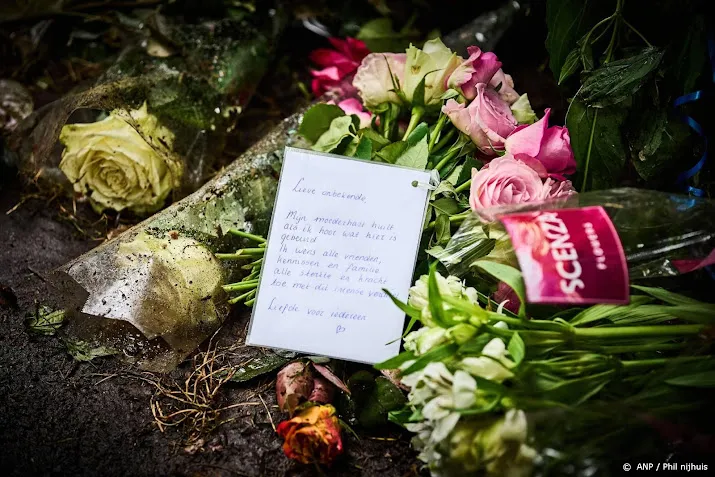 Lieve onbekende,
Mijn moederhart huilt
als ik hoor wat hier is
gebeurd
Ik wens alle vrienden,
kennissen en familie
alle sterkte en kracht
toe met dit verlies
Liefde voor iedereen
SCENZA
FLOWERS
© ANP / Phil nijhuis